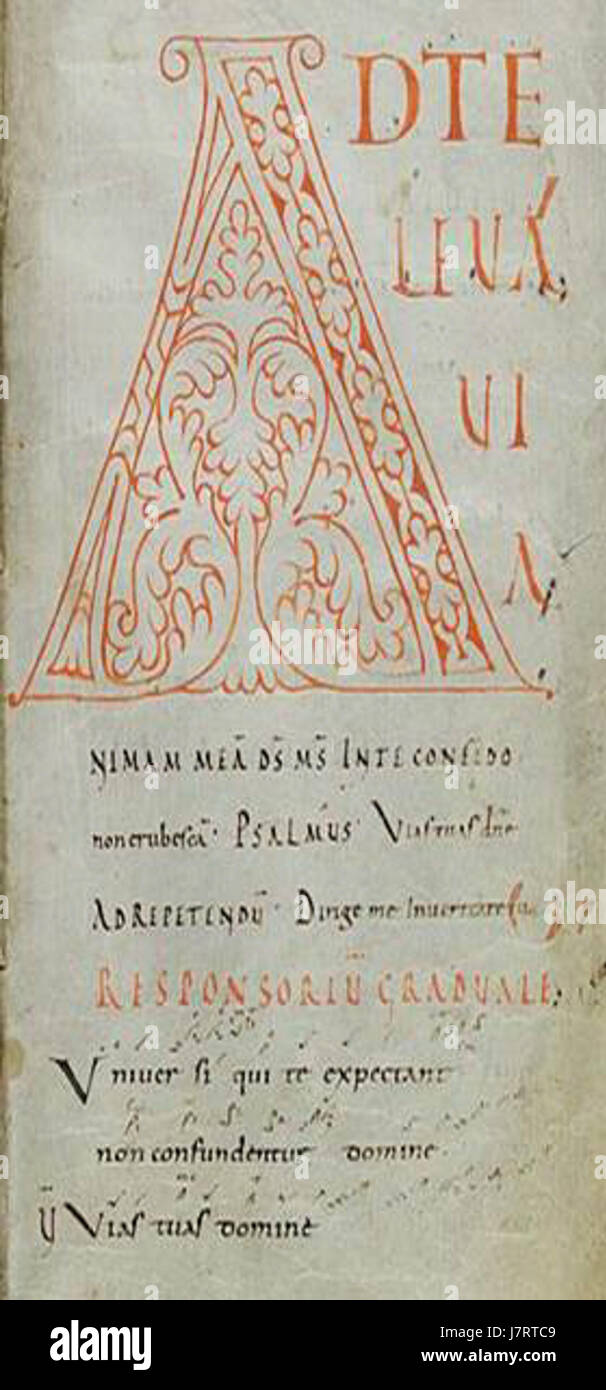 ADTE
LEUA
UI
A
NIMAM MEĀ DS̄ MS̄ INTE CONFIDO
non erubescā· PSALMUS· Vias tuas dn̄e
AD REPETENDŪ· Dirige me In ueritate tua
RESPONSORIŪ GRADUALE;
Vniuer si qui te expectant
non confundentur domine·
Ṽ Vias tuas domine
alamy
Image ID: J7RTC9
www.alamy.com